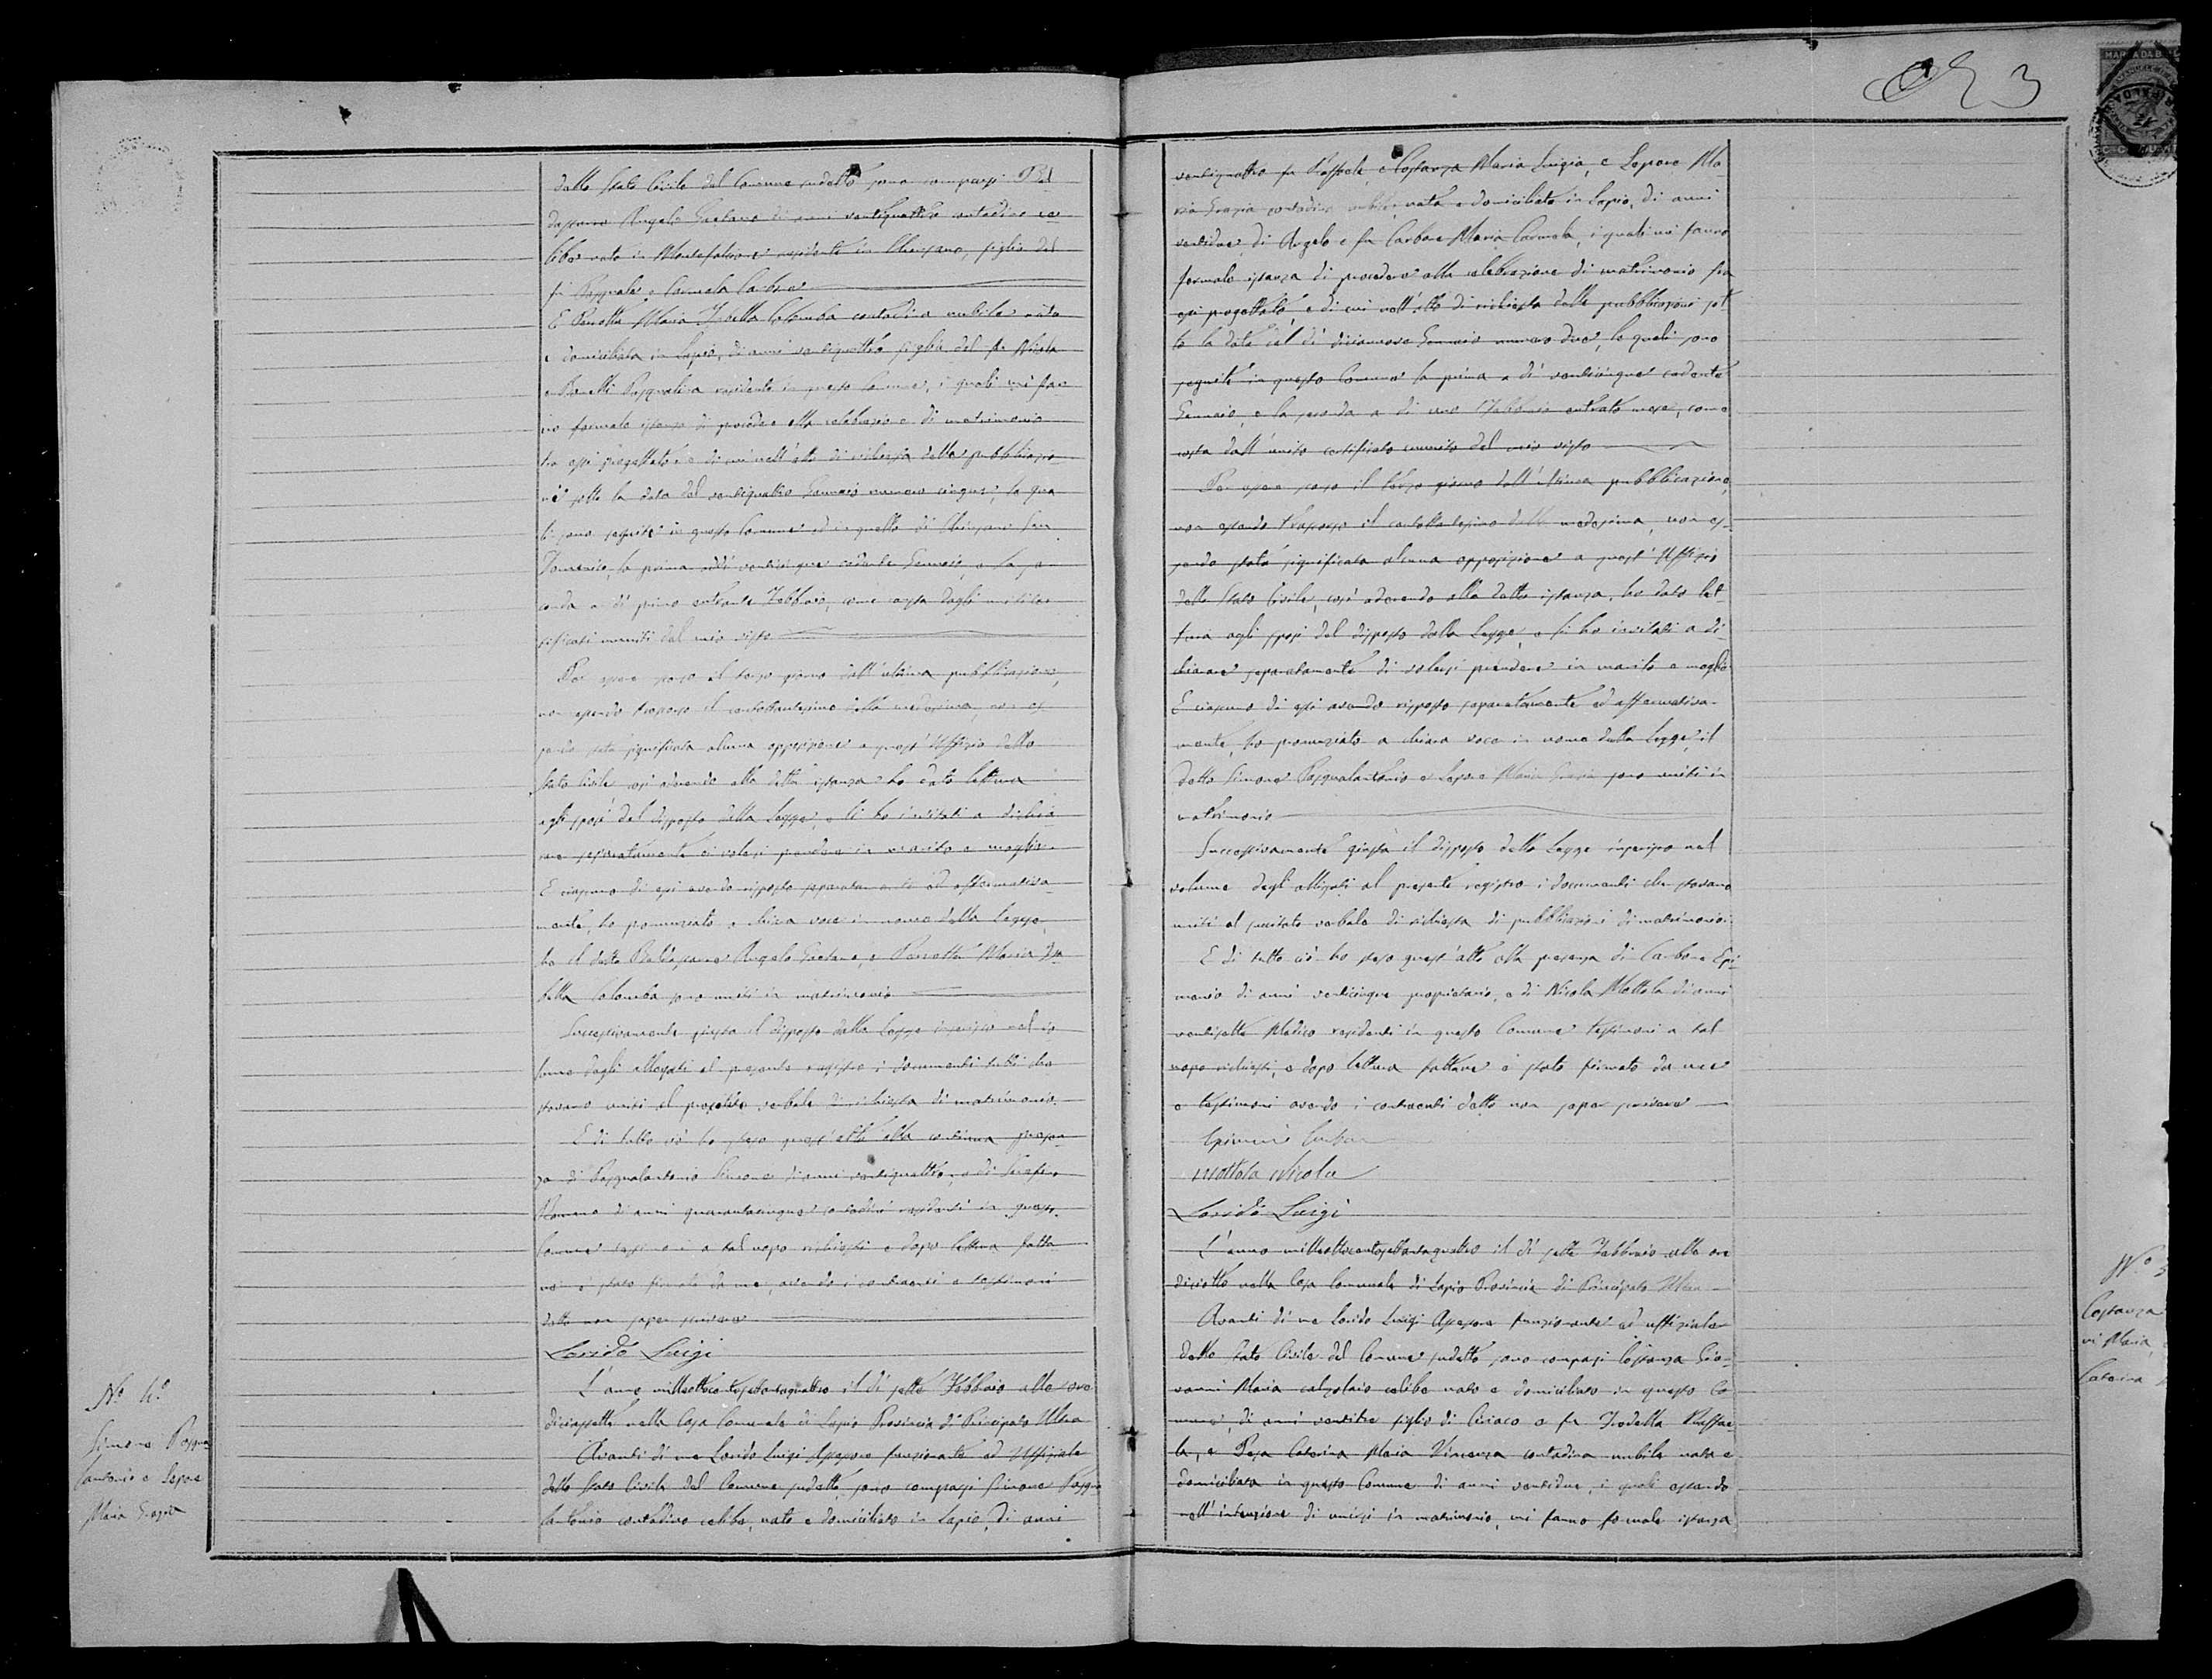 dello Stato Civile del Comune sudetto sono comparsi Bal
dassarre Angelo Gaetano di anni ventiquattro contadino ce
libe nato in Montefalcione residente in Chiusano, figlio del
fu Pasquale e Carmela Carbone
E Perrotta Maria Isabella Colomba contadina nubile nata
e domiciliata in Lapio, di anni ventiquattro figlia del fu Nicola
e Pasqualina residente in questo Comune, i quali mi fan
no formale istanza di procedere alla celebrazione di matrimonio
tra essi progettato e di cui nell'atto di richiesta delle pubblicazio
ni sotto la data del ventiquattro Gennaio numero cinque, le qua
li sono seguite in questo Comune ed in quello di Chiusano San
Domenico, la prima addì venticinque cadente Gennaio, e la se
conda a dì primo entrante Febbraio, come costa dagli uniti cer
tificati muniti del mio visto
Per essere scorso il terzo giorno dall'ultima pubblicazione,
non essendo trascorso il centottantesimo dalla medesima, non es
sendo stata significata alcuna opposizione a quest'Uffizio dello
Stato Civile così aderendo alla detta istanza ho dato lettura
agli sposi del disposto della Legge, e li ho invitati a dichia
rare separatamente di volersi prendere in marito e moglie.
E ciascuno di essi avendo risposto separatamente ed affermativa
mente, ho pronunziato a chiara voce in nome della Legge
che il detto Baldassarre Angelo Gaetano, e Perrotta Maria Isa
bella Colomba sono uniti in matrimonio
Successivamente giusta il disposto della Legge inserisco nel vo
lume degli allegati al presente registro i documenti tutti che
stavano uniti al verbale di richiesta di matrimonio.
E di tutto ciò ho steso quest'atto alla continua presen
za di Pasqualantonio Simone di anni ventiquattro, e di
Romano di anni quarantacinque contadini residenti in questo
Comune testimoni a tal uopo richiesti e dopo lettura fatta
ne è stato firmato da me, avendo i contraenti e testimoni
detto non saper scrivere
Lorido Luigi
No. 4º
Simone Pasqua
lantonio e Lepore
Maria Grazia
L'anno milleottocentosettantaquattro il dì sette Febbraio alle ore
diciassette nella Casa Comunale di Lapio Provincia di Principato Ultra
Avanti di me Lorido Luigi Assessore funzionante ad Uffiziale
dello Stato Civile del Comune sudetto sono comparsi Simone Pasqua
lantonio contadino celibe, nato e domiciliato in Lapio, di anni
3
ventiquattro fu Raffaele e Costanza Maria Luigia, e Lepore Ma
ria Grazia contadina nubile nata e domiciliata in Lapio, di anni
ventidue, di Angelo e fu Carbone Maria Carmela, i quali mi fanno
formale istanza di procedere alla celebrazione di matrimonio fra
essi progettato e di cui nell'atto di richiesta delle pubblicazioni sot
to la data del dì diciannove Gennaio numero due, le quali sono
seguite in questo Comune la prima a dì venticinque cadente
Gennaio, e la seconda a dì uno Febbraio entrato mese, come
costa dall'unito certificato munito del mio visto
Per essere scorso il terzo giorno dall'ultima pubblicazione,
non essendo trascorso il centottantesimo dalla medesima, non es
sendo stata significata alcuna opposizione a quest'Uffizio
dello Stato Civile, così aderendo alla detta istanza, ho dato let
tura agli sposi del disposto della Legge, e li ho invitati a di
chiarare separatamente di volersi prendere in marito e moglie
E ciascuno di essi avendo risposto separatamente ed affermativa
mente, ho pronunziato a chiara voce in nome della Legge, il
detto Simone Pasqualantonio e Lepore Maria Grazia sono uniti in
matrimonio
Successivamente giusta il disposto della Legge inserisco nel
volume degli allegati al presente registro i documenti che stavano
uniti al precitato verbale di richiesta di pubblicazioni di matrimonio.
E di tutto ciò ho steso quest'atto alla presenza di Carbone Epi
menio di anni venticinque proprietario, e di Nicola Mottola di anni
ventisette Medico residenti in questo Comune testimoni a tal
uopo richiesti, e dopo lettura fattane è stato firmato da me
e testimoni avendo i contraenti detto non saper scrivere
Mottola Nicola
Lorido Luigi
L'anno milleottocentosettantaquattro il dì sette Febbraio alle ore
diciotto nella Casa Comunale di Lapio Provincia di Principato Ultra
Avanti di me Lorido Luigi Assessore funzionante ad uffiziale
dello Stato Civile del Comune sudetto sono comparsi Costanza Gio
vanni Maria calzolaio celibe nato e domiciliato in questo Co
mune, di anni ventitre figlio di Ciriaco e fu Raffae
la, e Pesa Caterina Maria Vincenza contadina nubile nata e
domiciliata in questo Comune di anni ventidue, i quali essendo
nell'intenzione di unirsi in matrimonio, mi fanno formale istanza
Nº
Costanza
ni Maria
Caterina